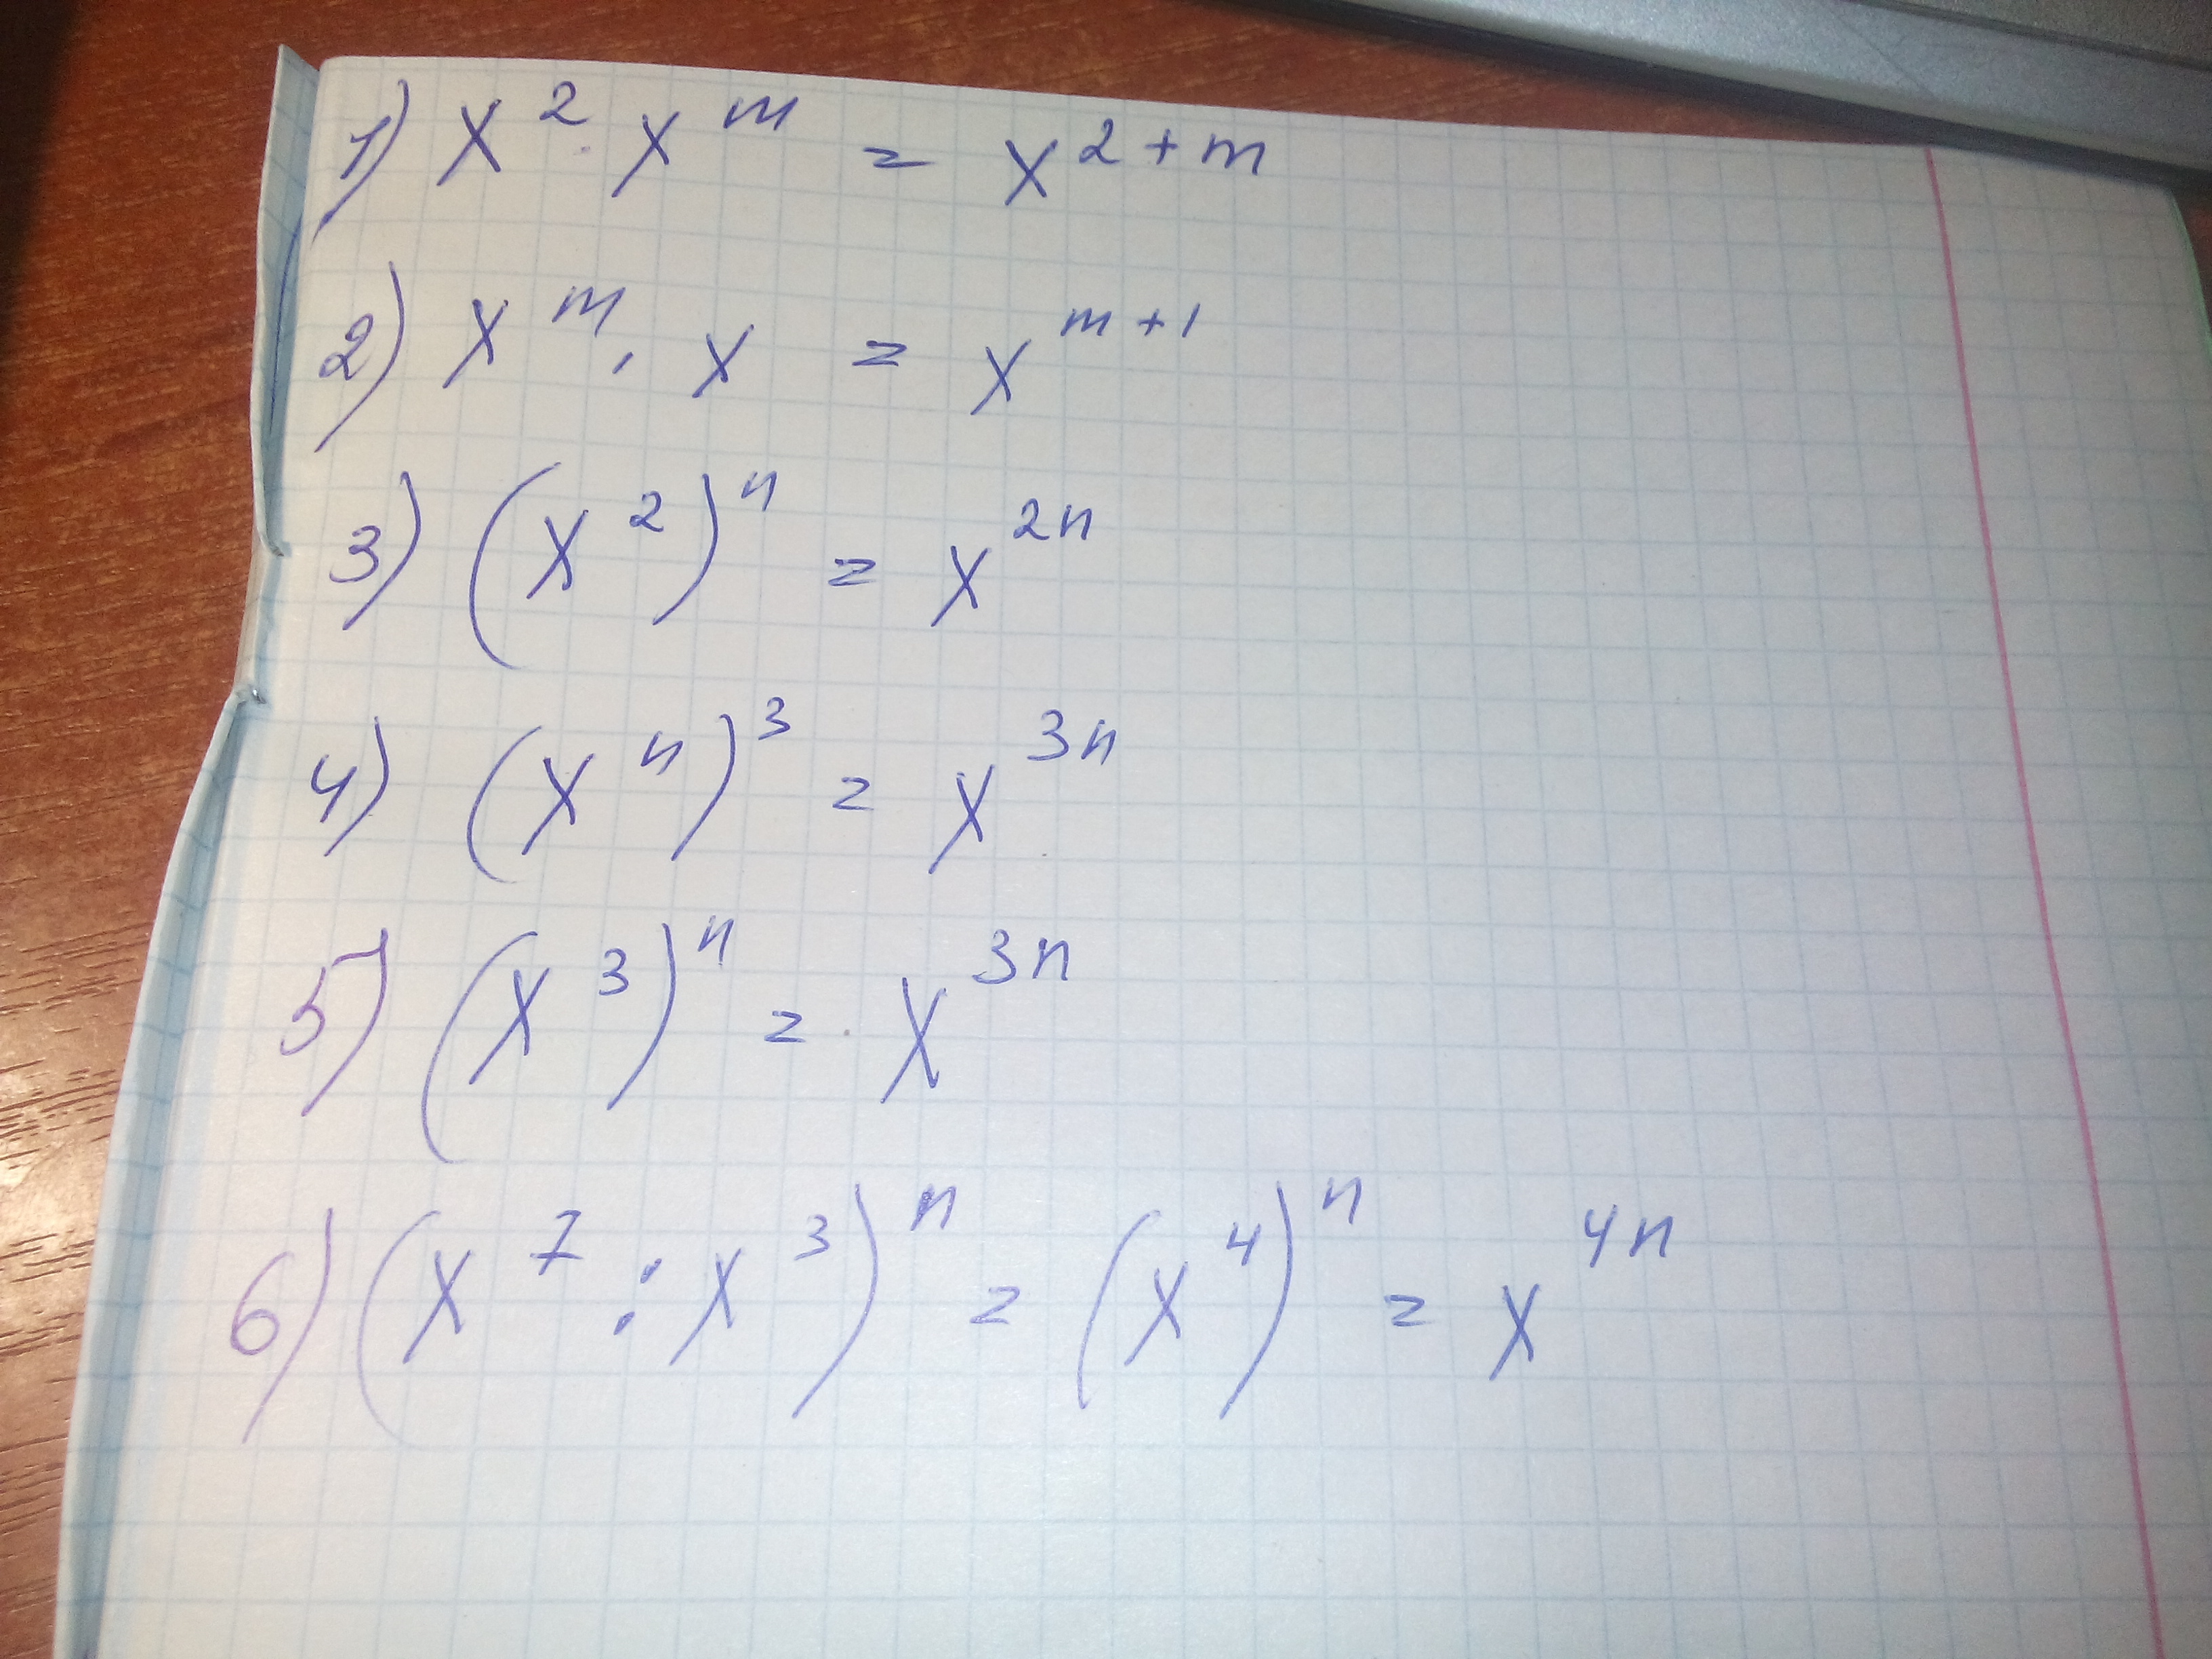 1) x² · xᵐ = x²⁺ᵐ
2) xᵐ · x = xᵐ⁺¹
3) (x²)ⁿ = x²ⁿ
4) (xⁿ)³ = x³ⁿ
5) (x³)ⁿ = x³ⁿ
6) (x⁷ : x³)ⁿ = (x⁴)ⁿ = x⁴ⁿ